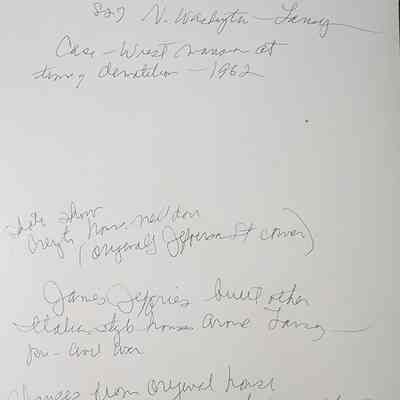 827 N. Washington - Lansing
Case - West mansion at
time of demolition - 1962
photo show
house next door
(originally Jefferson St corner)
James Jeffries built other
Italian style houses around Lansing
pre - Civil War
Changes from original house